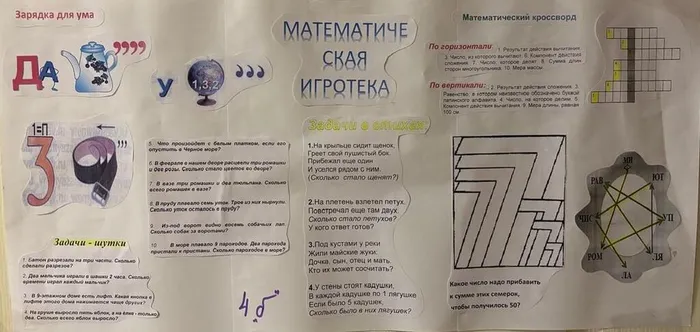 Зарядка для ума
ДА
,,,,
У
1,3,2
,,,
1=П
3
,,,
Задачи - шутки
1. Батон разрезали на три части. Сколько
сделали разрезов?
2. Два мальчика играли в шашки 2 часа. Сколько
времени играл каждый мальчик?
3. В 9-этажном доме есть лифт. Какая кнопка в
лифте этого дома нажимается чаще других?
4. На груше выросло пять яблок, а на ёлке - только
два. Сколько всего яблок выросло?
5. Что произойдет с белым платком, если его
опустить в Черное море?
6. В феврале в нашем дворе расцвели три ромашки
и две розы. Сколько стало цветов во дворе?
7. В вазе три ромашки и два тюльпана. Сколько
всего ромашек в вазе?
8. В пруду плавало семь уток. Трое из них нырнули.
Сколько уток осталось в пруду?
9. Из-под ворот видно восемь собачьих лап.
Сколько собак за воротами?
10. В море плавало 9 пароходов. Два парохода
пристали к пристани. Сколько пароходов в море?
4 б
МАТЕМАТИЧЕ
СКАЯ
ИГРОТЕКА
Задачи в стихах
1.На крыльце сидит щенок,
Греет свой пушистый бок.
Прибежал еще один
И уселся рядом с ним.
(Сколько стало щенят?)
2.На плетень взлетел петух.
Повстречал еще там двух.
Сколько стало петухов?
У кого ответ готов?
3.Под кустами у реки
Жили майские жуки.
Дочка, сын, отец и мать.
Кто их может сосчитать?
4.У стены стоят кадушки,
В каждой кадушке по 1 лягушке
Если было 5 кадушек,
Сколько было в них лягушек?
Математический кроссворд
По горизонтали: 1. Результат действия вычитания.
3. Число, из которого вычитают. 5. Компонент действия
сложения. 7. Число, которое делят. 8. Сумма длин
сторон многоугольника. 10. Мера массы.
По вертикали: 2. Результат действия сложения. 3.
Равенство, в котором неизвестное обозначено буквой
латинского алфавита. 4. Число, на которое делим. 5.
Компонент действия вычитания. 9. Мера длины, равная
100 см
Какое число надо прибавить
к сумме этих семерок,
чтобы получилось 50?
МИ
РАВ
ЮТ
ЧИС
УП
РОМ
ЛЯ
ЛА